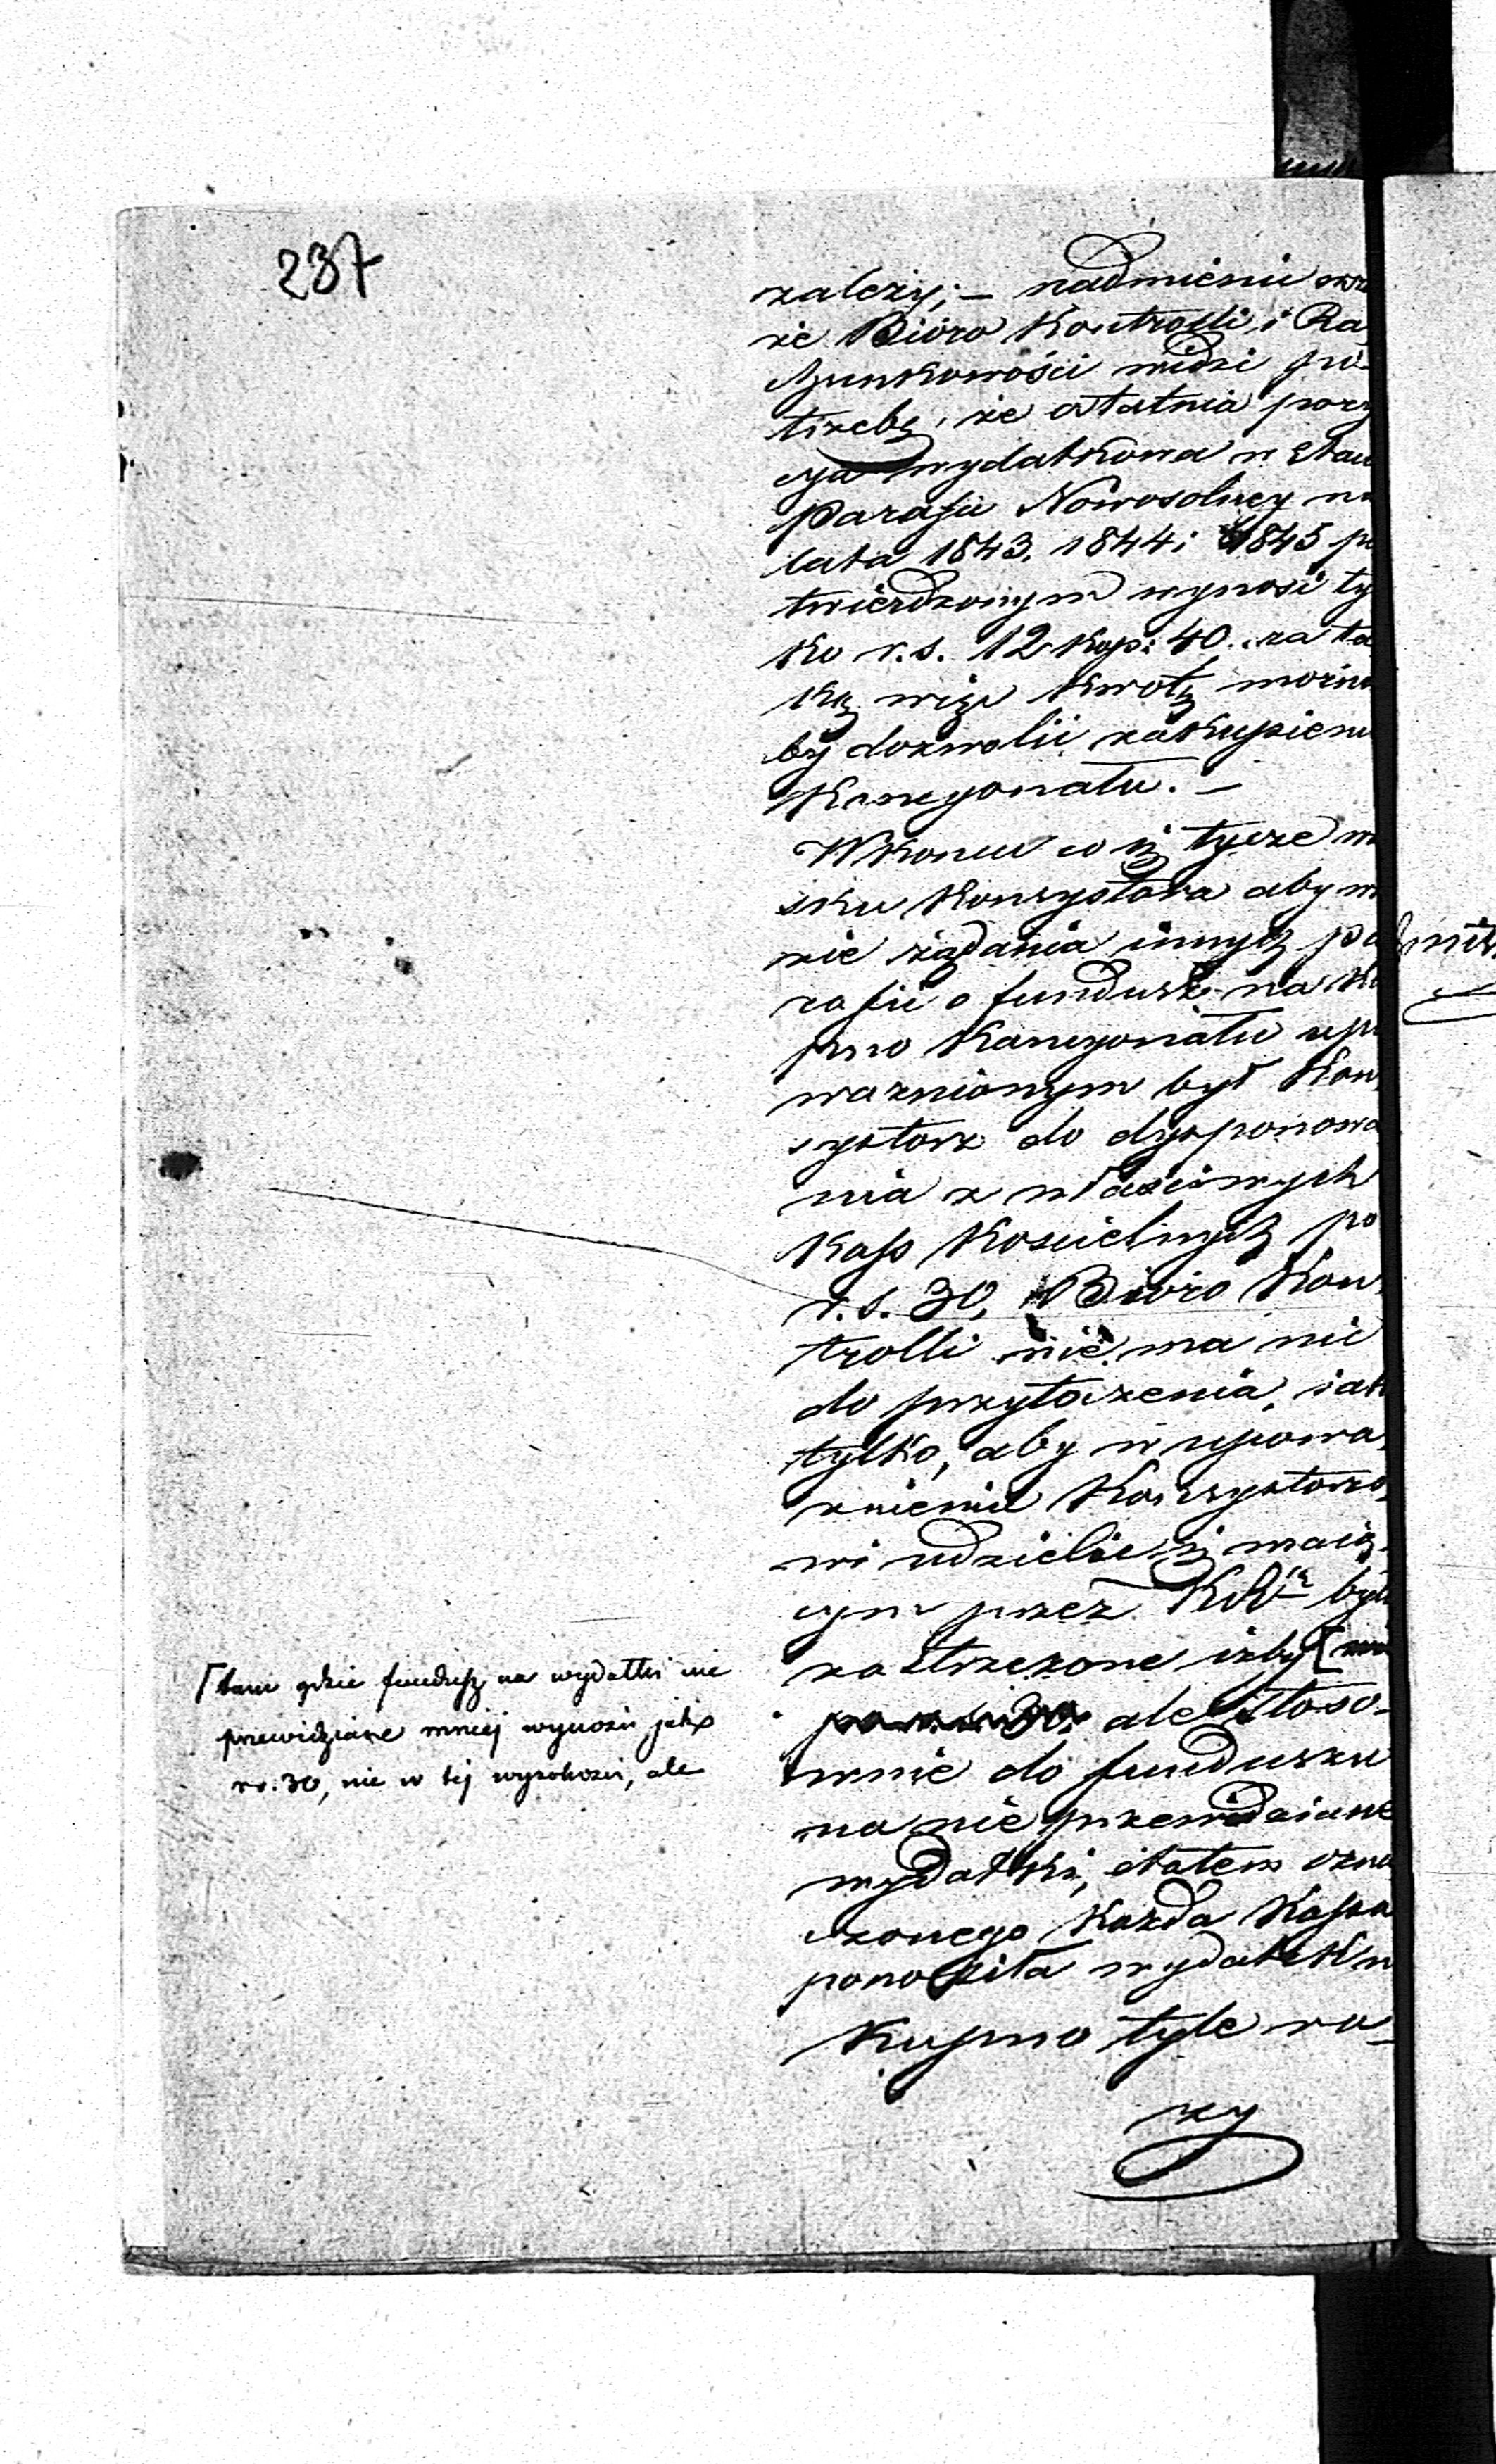 237
zależy; — nadmienić
że Bióro Kontrolli i Ra
chunkowości widzi po
trzebę, że ostatnia pozy
cya wydatkowa w Etacie
Parafii Nowosolney na
lata 1843. 1844 i 1845 po
twierdzonym wynosi tyl
ko r. s. 12 kop: 40. za ta
ką więc kwotę można
by dozwolić zakupienie
Kancyonału. —
W końcu co się tycze
sku Konsystorza aby w
zie żądania innych pa
rafii o fundusz na ku
pno Kancyonału upo
ważnionym był Kon
systorz do dysponowa
nia z właściwych
Kass Kościelnych po
r. s. 30, Bióro Kon
trolli nie ma nic
do przytoczenia, jak
tylko, aby w upowa
żnieniu Konsystorzo
wi udzielić się mają
cym przez KR był
zastrzeżone iżby [nie
po r. s. 30, ale stoso-
wnie do funduszu
na nie przewidziane
wydatki, etatem ozna
czonego każda Kassa
ponosiła wydatek na
kupno tyle ra-
zy
[tam gdzie fundusz na wydatki nie
przewidziane mniej wynosi jak
rs. 30, nie w tej wysokości, ale